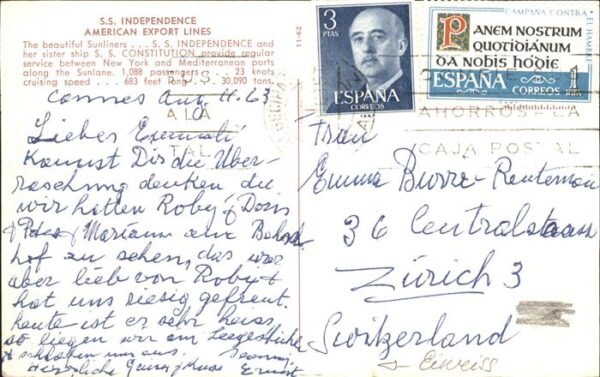 S.S. INDEPENDENCE
AMERICAN EXPORT LINES
The beautiful Sunliners . . . S.S. INDEPENDENCE and
her sister ship S.S. CONSTITUTION provide regular
service between New York and Mediterranean ports
along the Sunlane. 1,088 passengers . . . 23 knots
cruising speed . . . 683 feet long . . . 30,090 tons.
11-62
Cannes Aug. 11. 63
A LA
TAL
Liebes
Kannst Dir die Über-
raschung denken die
wir hatten Roby & Doris
& Peter & Mariann am Bahnh
hof zu sehen, das war
aber lieb von Roby &
hat uns riesig gefreut.
heute ist er sehr heiss,
so liegen wir am
& schlafen uns aus.
Herzliche Ernst
3
PTAS
ESPAÑA
CORREOS
CAMPAÑA CONTRA EL HAMBRE
PANEM NOSTRUM
QUOTIDIÁNUM
DA NOBIS HODIE
ESPAÑA
CORREOS 1
AHORROS A LA
CAJA POSTAL
Frau
Emma Burri-Reutemann
36 Centralstrasse
Zürich 3
Switzerland